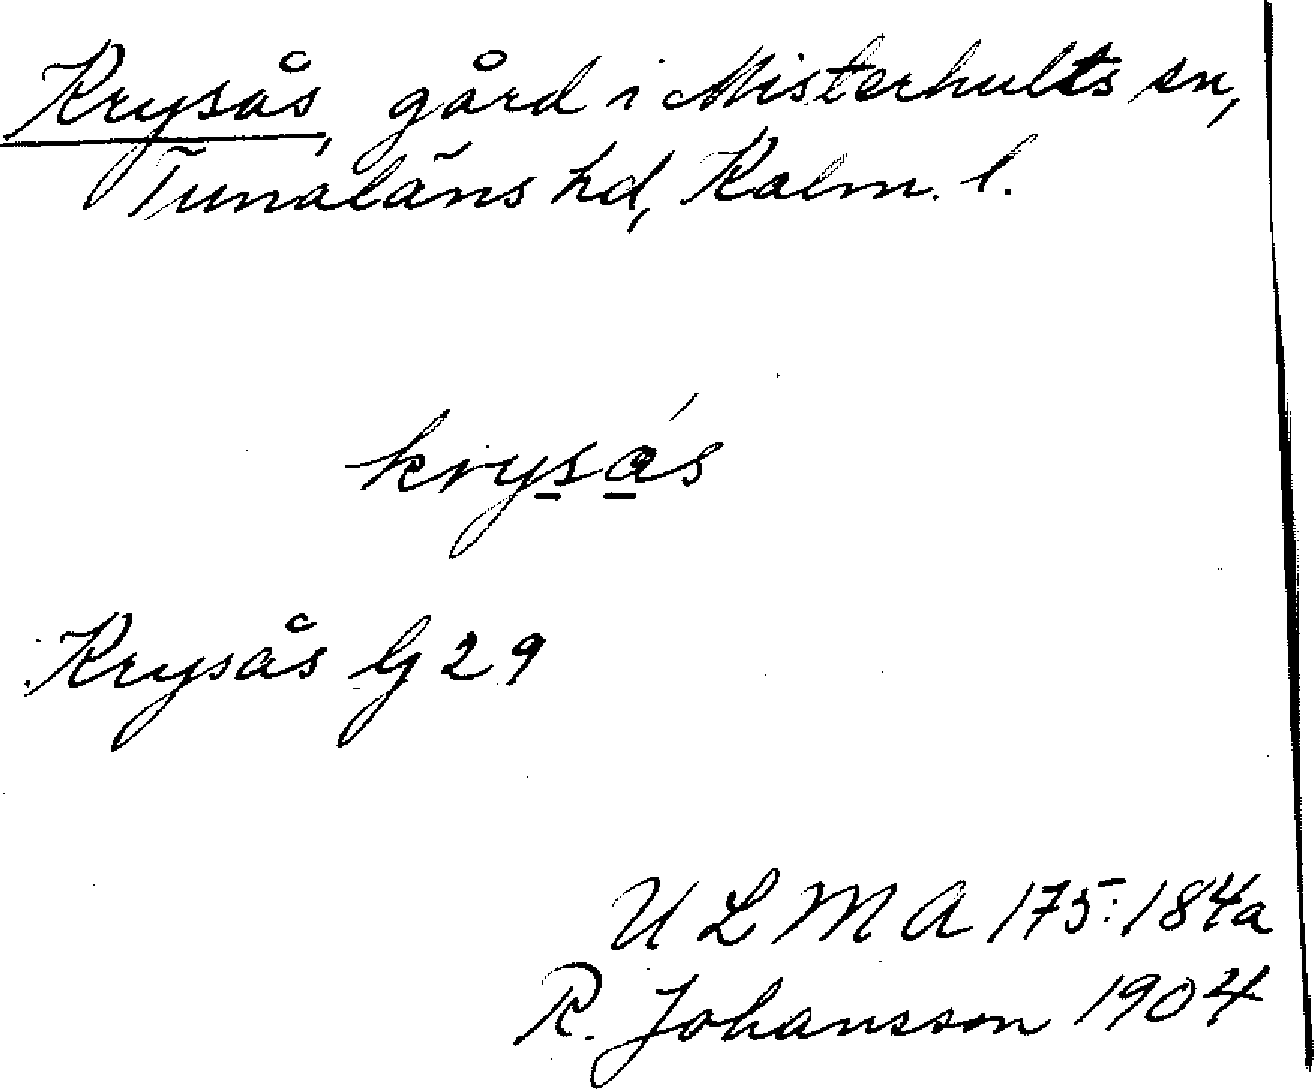 Krysås, gård i Misterhults sn,
Tunaläns hd, Kalm. l.
krysás
Krysås G 29
U L M A 175:184a
R. Johansson 1904